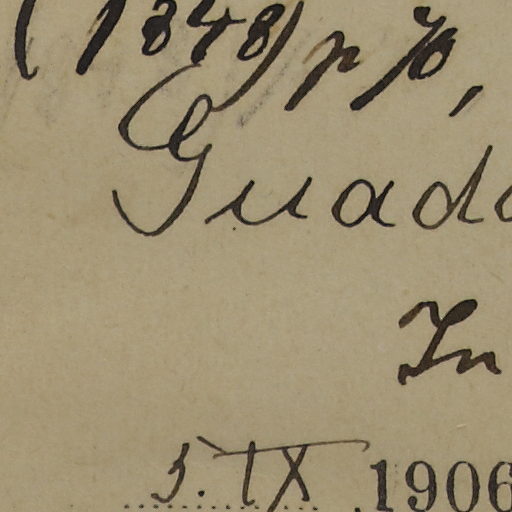 (1848) p 70,
Guad
In
5. IX 1906